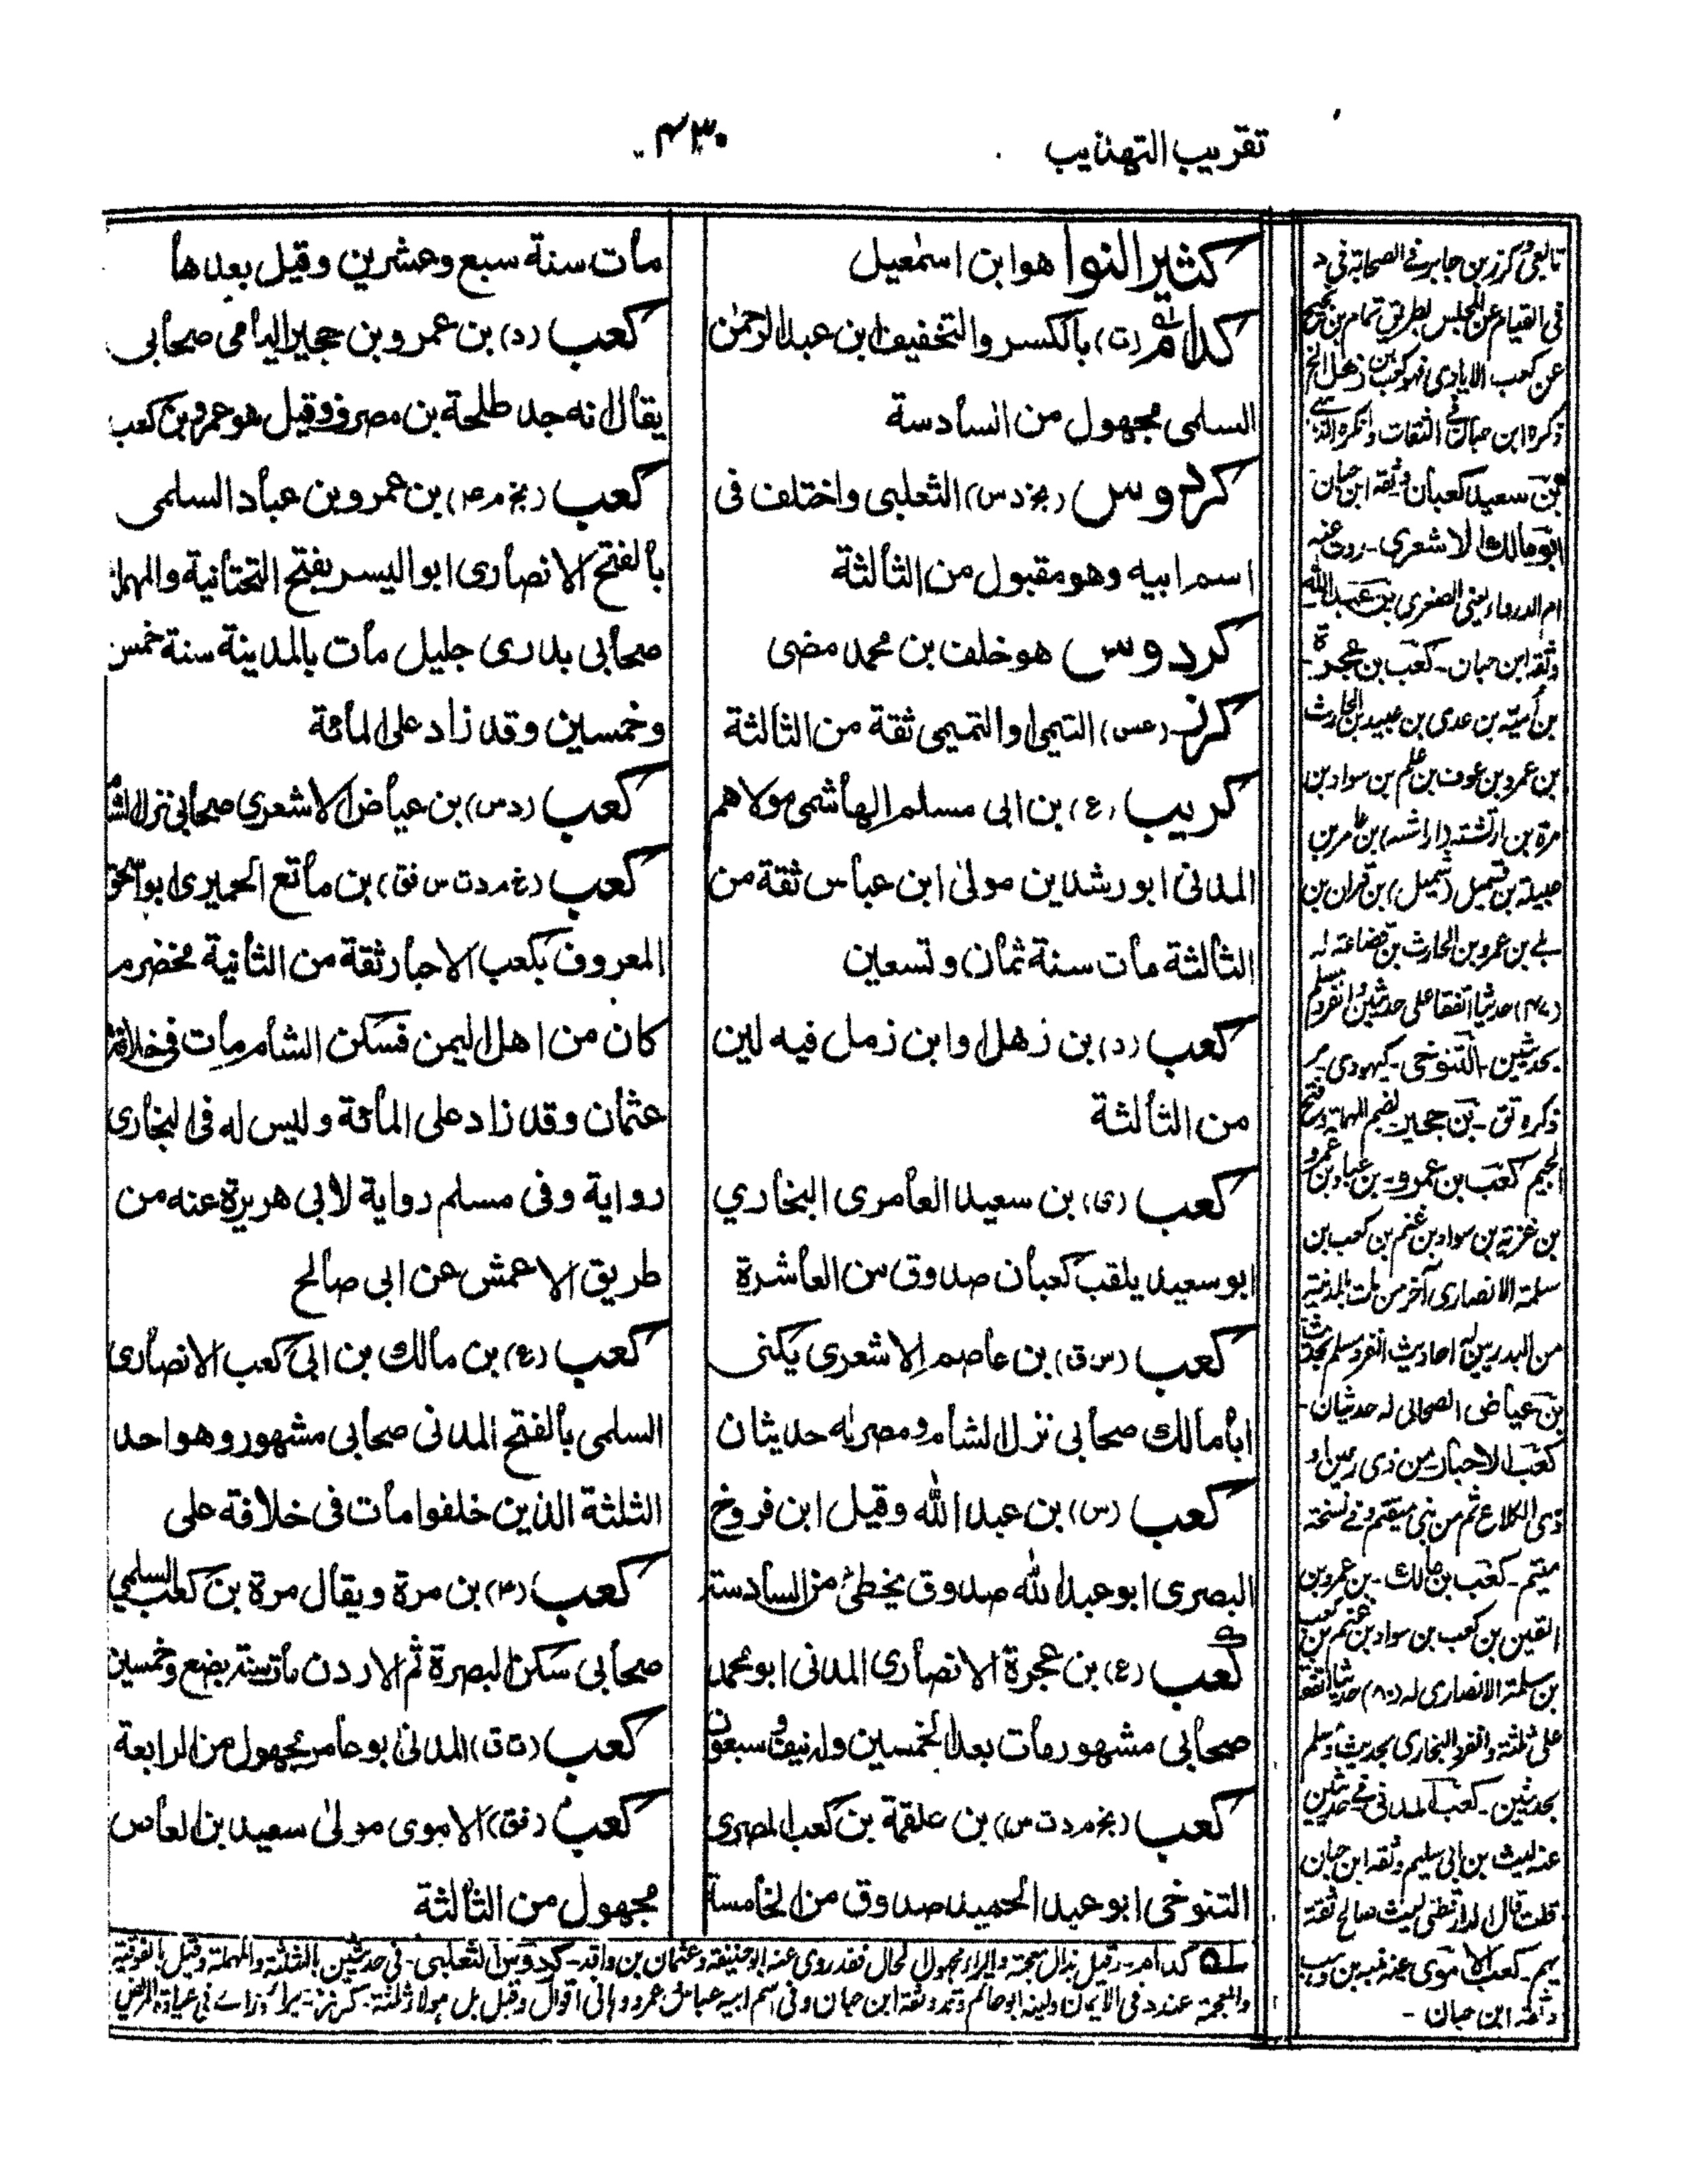 تقريب التهذيب
٤٣٠
كثير النوا هو ابن اسمٰعيل
كدام (ت) بالكسر والتخفيف ابن عبد الرحمٰن
السلمى مجهول من السادسة
كردوس (بخ د س) الثعلبى واختلف فى
اسم ابيه وهو مقبول من الثالثة
كردوس هو خلف بن محمد مضى
كرز (عس) التيمى او التميمى ثقة من الثالثة
كريب (ع) بن ابى مسلم الهاشمى مولاهم
المدنى ابو رشدين مولىٰ ابن عباس ثقة من
الثالثة مات سنة ثمان وتسعين
كعب (د) بن زهل او ابن زمل فيه لين
من الثالثة
كعب (ى) بن سعيد العامرى البخاري
ابو سعيد يلقب كعبان صدوق من العاشرة
كعب (س ق) بن عاصم الاشعرى يكنى
ابا مالك صحابى نزل الشام ومصر له حديثان
كعب (س) بن عبد الله وقيل ابن فروخ
البصرى ابو عبد الله صدوق يخطئ من السادسة
كعب (ع) بن عجرة الانصارى المدنى ابو محمد
صحابى مشهور مات بعد الخمسين وله نيف وسبعون
كعب (بخ م د ت س) بن علقمة بن كعب المصرى
التنوخى ابو عبد الحميد صدوق من الخامسة
مات سنة سبع وعشرين وقيل بعدها
كعب (د) بن عمرو بن حجير اليامى صحابى
يقال انه جد طلحة بن مصرف وقيل هو عمرو بن كعب
كعب (بخ م ص) بن عمرو بن عباد السلمى
بالفتح الانصارى ابو اليسر بفتح التحتانية والمهملة
صحابى بدرى جليل مات بالمدينة سنة خمس
وخمسين وقد زاد على المائة
كعب (د س) بن عياض الاشعرى صحابى نزل الشام
كعب (خ م د ت س فق) بن ماتع الحميرى ابو اسحق
المعروف بكعب الاحبار ثقة من الثانية مخضرم
كان من اهل اليمن فسكن الشام مات فى خلافة
عثمان وقد زاد على المائة وليس له فى البخارى
رواية وفى مسلم رواية لابى هريرة عنه من
طريق الاعمش عن ابى صالح
كعب (ع) بن مالك بن ابى كعب الانصارى
السلمى بالفتح المدنى صحابى مشهور وهو احد
الثلثة الذين خلفوا مات فى خلافة على
كعب (٤) بن مرة ويقال مرة بن كعب السلمي
صحابى سكن البصرة ثم الاردن مات سنة بضع وخمسين
كعب (ت ق) المدنى ابو عامر مجهول من الرابعة
كعب (فق) الاموى مولىٰ سعيد بن العاص
مجهول من الثالثة
تابعى وكرز بن جابر فى الصحابة فى د
فى القيام عن المجلس بطريق تمام بن نجيح
عن كعب الايادى فهو كعب بن ذهل الخ
ذكره ابن حبان فى الثقات وانكره الذهبى
بن سعيد كعبان وثقه ابن حبان
ابو مالك الاشعرى - روت عنه
ام الدرداء يعنى الصغرى بن عبد الله
وثقه ابن حبان - كعب بن عجرة -
بن أمية بن عدى بن عبيد بن الحارث
بن عمرو بن عوف بن غنم بن سواد بن
مرة بن اراشة بن عامر بن
عبيلة بن قسميل (شميل) بن فران بن
بلى بن عمرو بن الحارث بن قضاعة له
(٤٧) حديثا اتفقا على حديثين وانفرد مسلم
بحديثين - التنوخى -
ذكره تق - بن حجير بضم المهملة وفتح
الجيم كعب بن عمرو - بن عباد بن عمرو
بن غزية بن سواد بن غنم بن كعب بن
سلمة الانصارى آخر من مات بالمدينة
من البدريين له احاديث انفرد مسلم بحديث
بن عياض الصحابى له حديثان -
كعب الاحبار من ذى رعين او
ذى الكلاع ثم من بنى ميتم وفى نسخة
ميثم - كعب بن مالك - بن عمرو بن
القين بن كعب بن سواد بن غنم بن كعب
بن سلمة الانصارى له (٨٠) حديثا اتفقا
على ثلثة وانفرد البخارى بحديث ومسلم
بحديثين - كعب المدنى فى حديثين
عنه ليث بن ابى سليم وثقه ابن حبان
قلت قال الدارقطنى ليث صالح ثقة
يهم - كعب الاموى عنه
وثقه ابن حبان -
له كدام - وقيل بذال معجمة والراء مجهول الحال فقد روى عنه ابو حنيفة وعثمان بن واقد - كردوس الثعلبى - فى حديثين بالمثلثة والمهملة وقيل بالفوقية
والمعجمة عند د فى الايمان ولينه ابو حاتم وقد وثقه ابن حبان وفى اسم ابيه عباس عمرو وهانى اقوال وقيل بل هؤلاء ثلثة - كرز - براء وزاے فى عيادة المريض